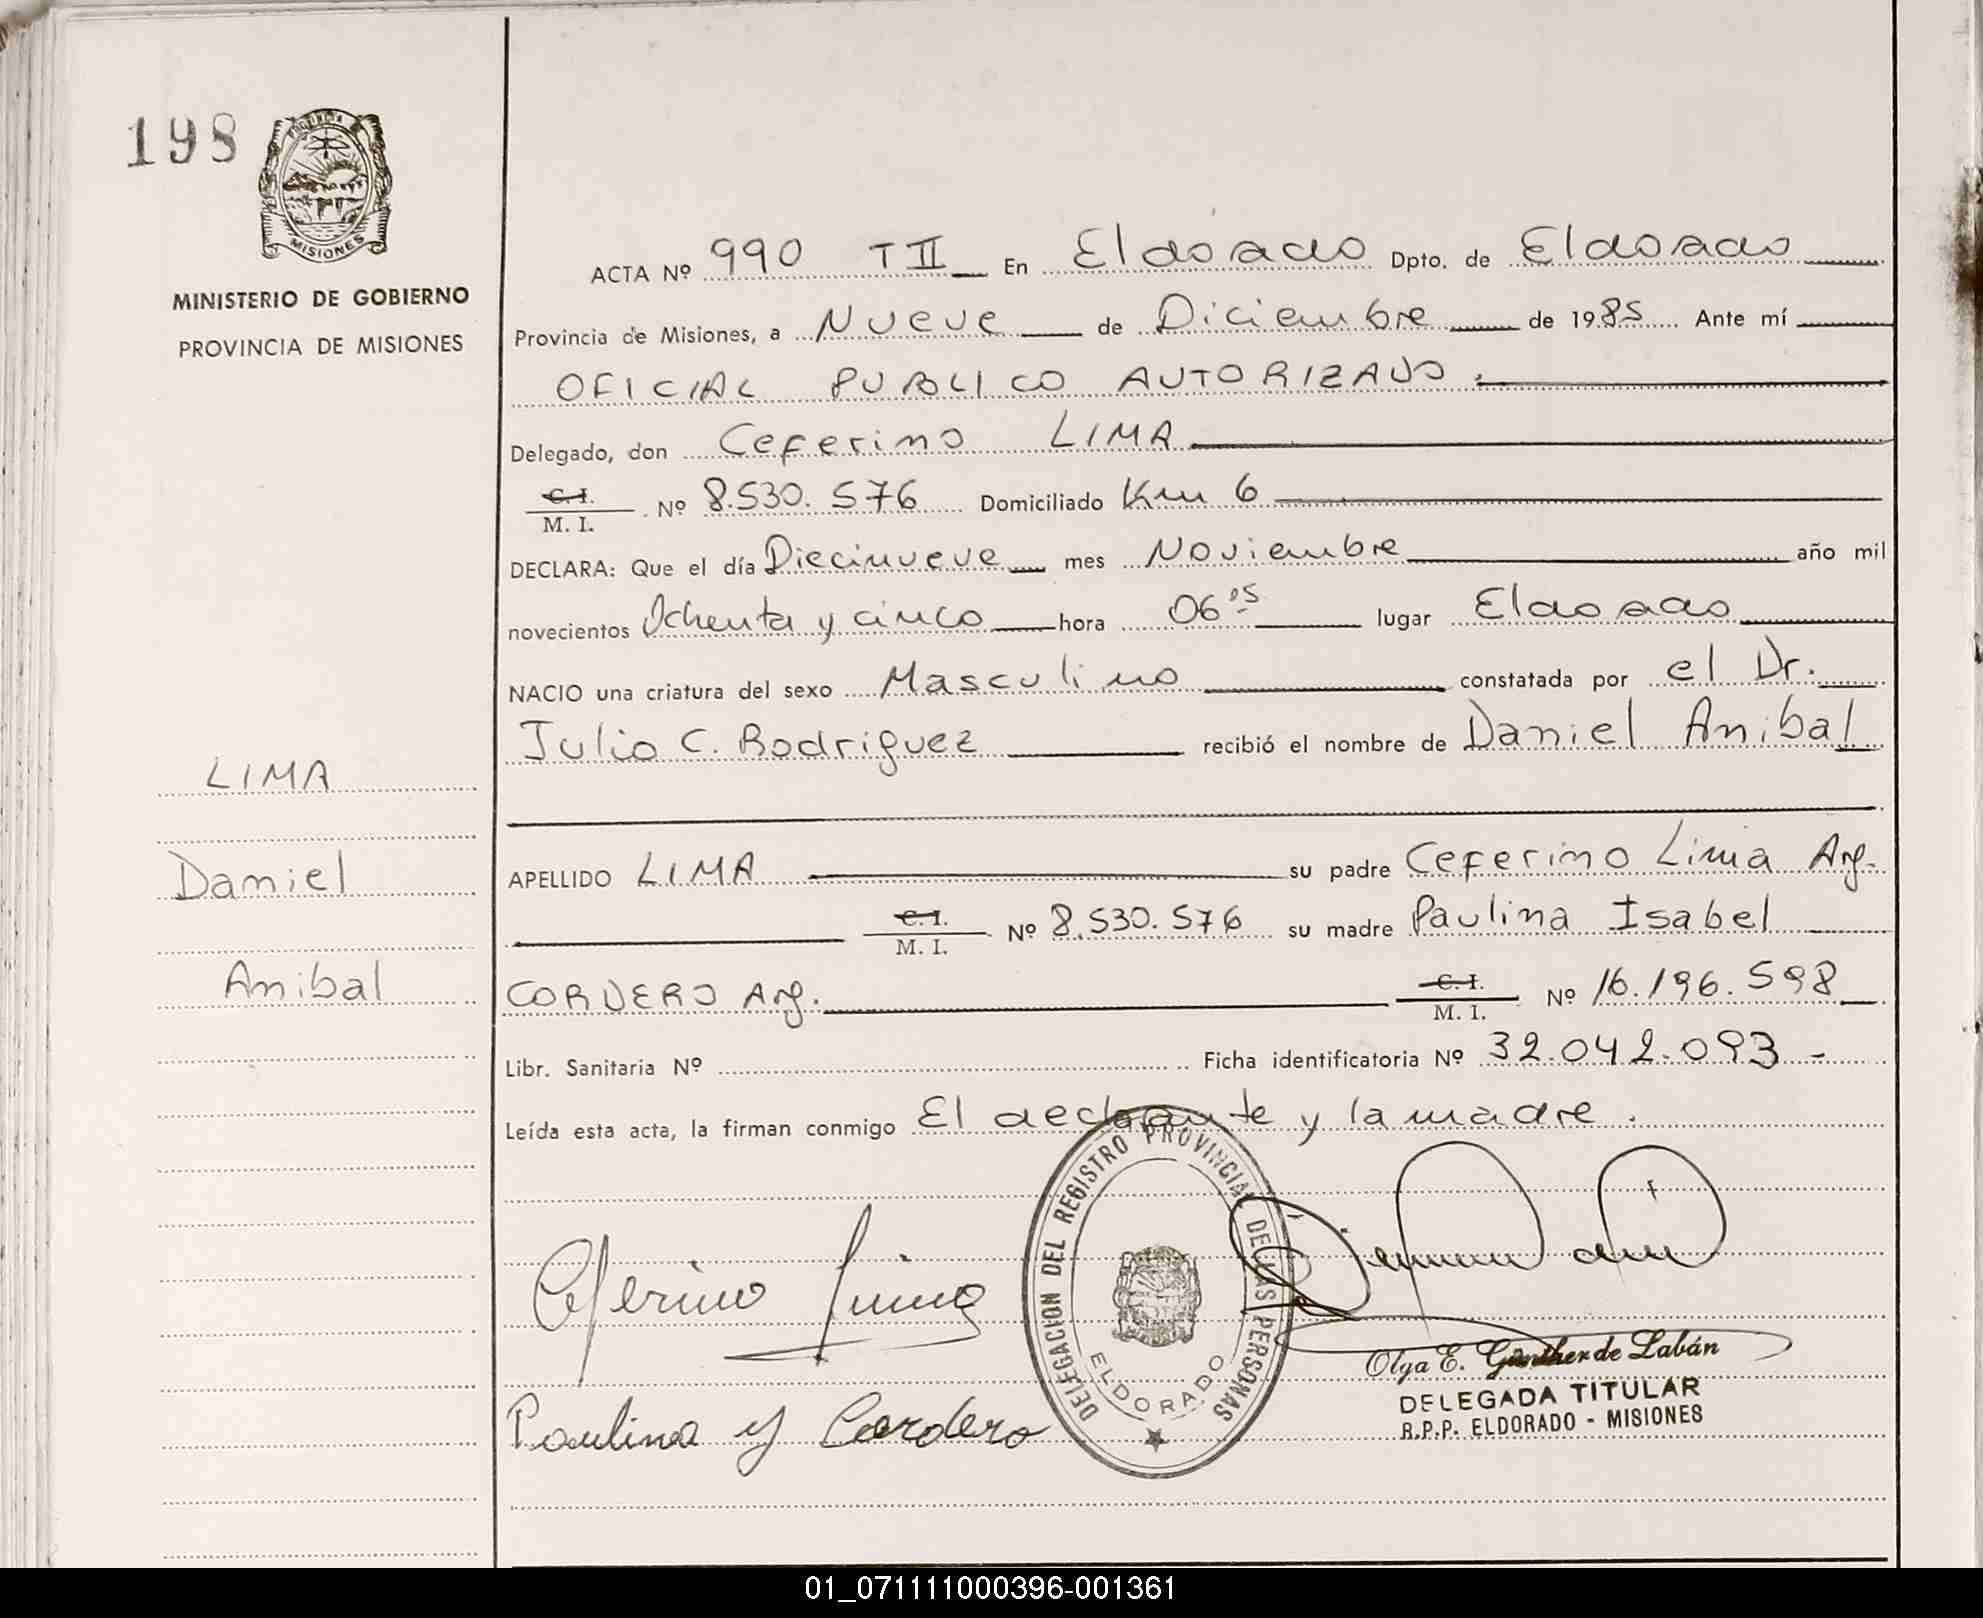 198
PROVINCIA DE
MISIONES
MINISTERIO DE GOBIERNO
PROVINCIA DE MISIONES
LIMA
Daniel
Anibal
ACTA Nº 990 T II En Eldorado Dpto. de Eldorado
Provincia de Misiones, a Nueve de Diciembre de 1985 Ante mí
OFICIAL PUBLICO AUTORIZADO.
Delegado, don Ceferino LIMA
C. I.
M. I. Nº 8.530.576 Domiciliado Km 6
DECLARA: Que el día Diecinueve mes Noviembre año mil
novecientos Ochenta y cinco hora 06 05 lugar Eldorado
NACIO una criatura del sexo Masculino constatada por el Dr.
Julio C. Rodriguez recibió el nombre de Daniel Anibal
APELLIDO LIMA su padre Ceferino Lima Arg.
C. I.
M. I. Nº 8.530.576 su madre Paulina Isabel
CORDERO Arg. C. I.
M. I. Nº 16.196.598
Libr. Sanitaria Nº Ficha identificatoria Nº 32.042.093 -
Leída esta acta, la firman conmigo El declarante y la madre.
DELEGACION DEL REGISTRO PROVINCIAL DE LAS PERSONAS
ELDORADO
Ceferino Lima
Olga E. Günther de Labán
DELEGADA TITULAR
R.P.P. ELDORADO - MISIONES
Paulina y Cordero
01_071111000396-001361